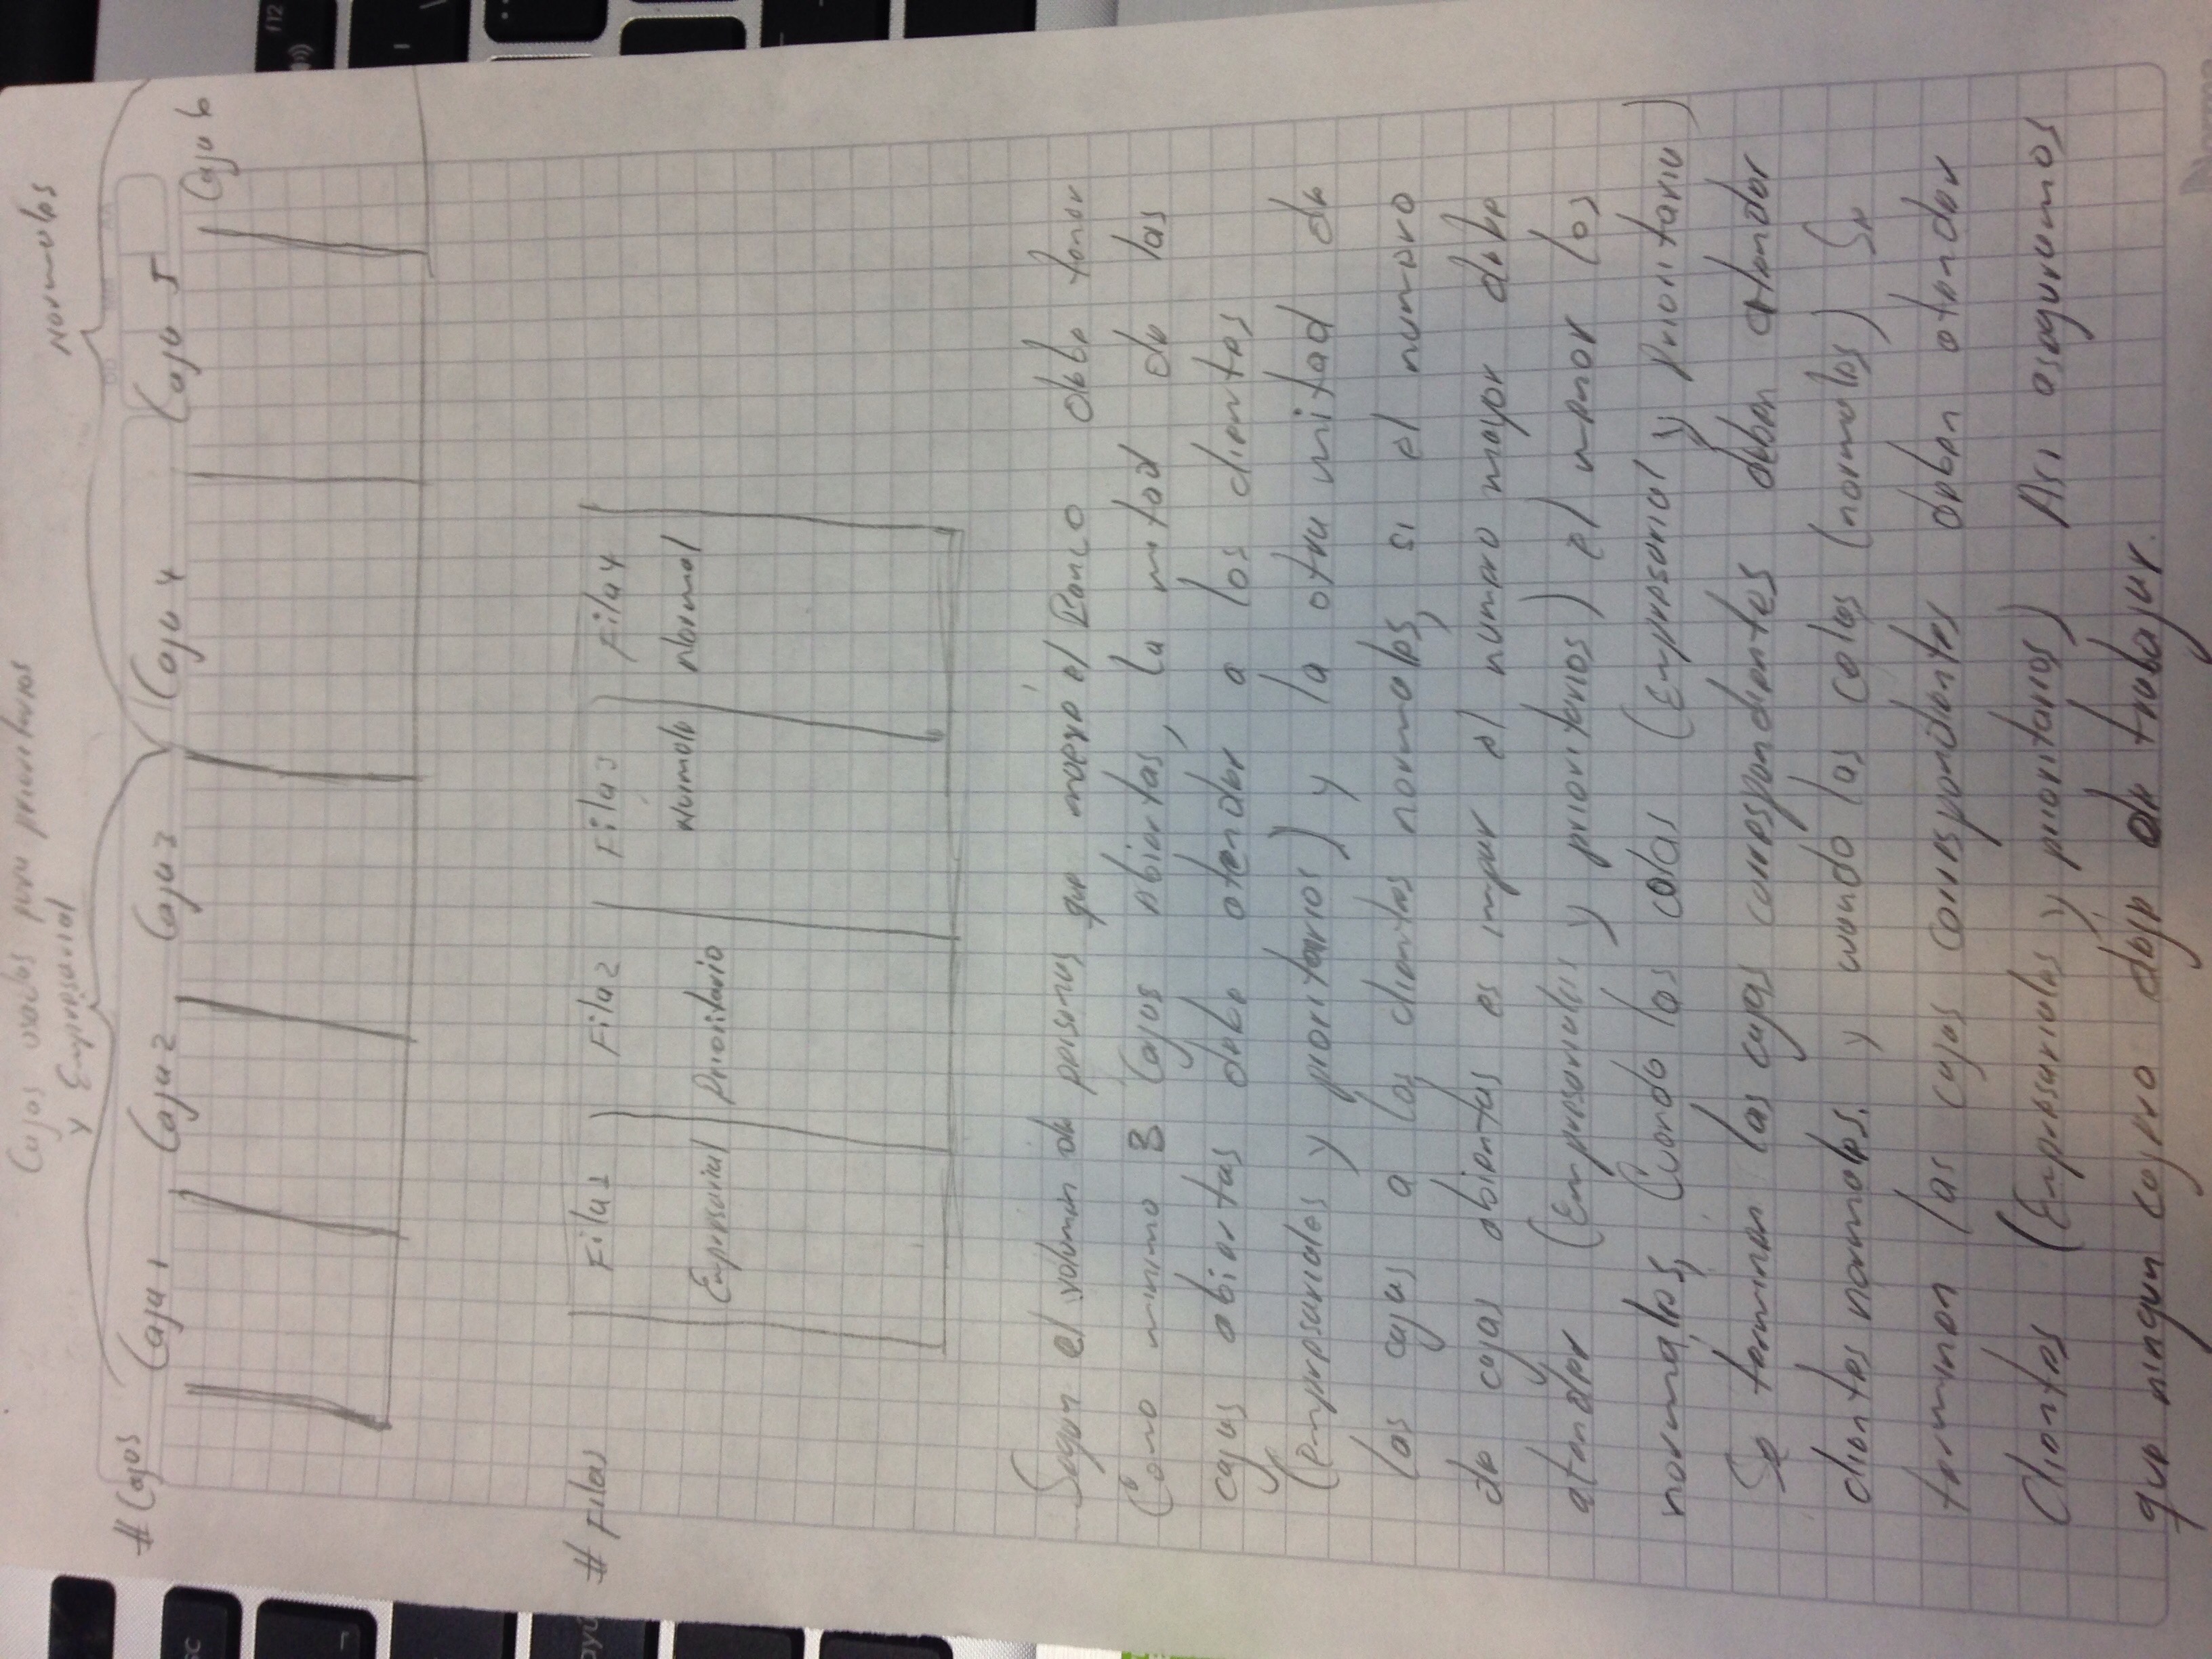 Cajas usadas para prioritarios
y Empresarial
Normales
# Cajas
Caja 1
Caja 2
Caja 3
Caja 4
Caja 5
Caja 6
# Filas
Fila 1
Fila 2
Fila 3
Fila 4
Empresarial
Prioritario
Normal
Segun el volumen de personas que mueve el Banco debe tener
Como minimo 3 Cajas Abiertas, la mitad de las
cajas abiertas debe atender a los clientes
(empresariales y prioritarios) y la otra mitad de
las cajas a los clientes normales, si el numero
de cajas abiertas es impar el numero mayor debe
atender (Empresariales y prioritarios) el menor los
normales, Cuando las colas (Empresarial y Prioritaria)
Se terminen las cajas correspondientes deben atender
clientes normales. y cuando las colas (normales) Se
terminen las cajas correspondientes deben atender
Clientes (Empresariales y prioritarios) Asi aseguramos
que ningun cajero deje de trabajar.